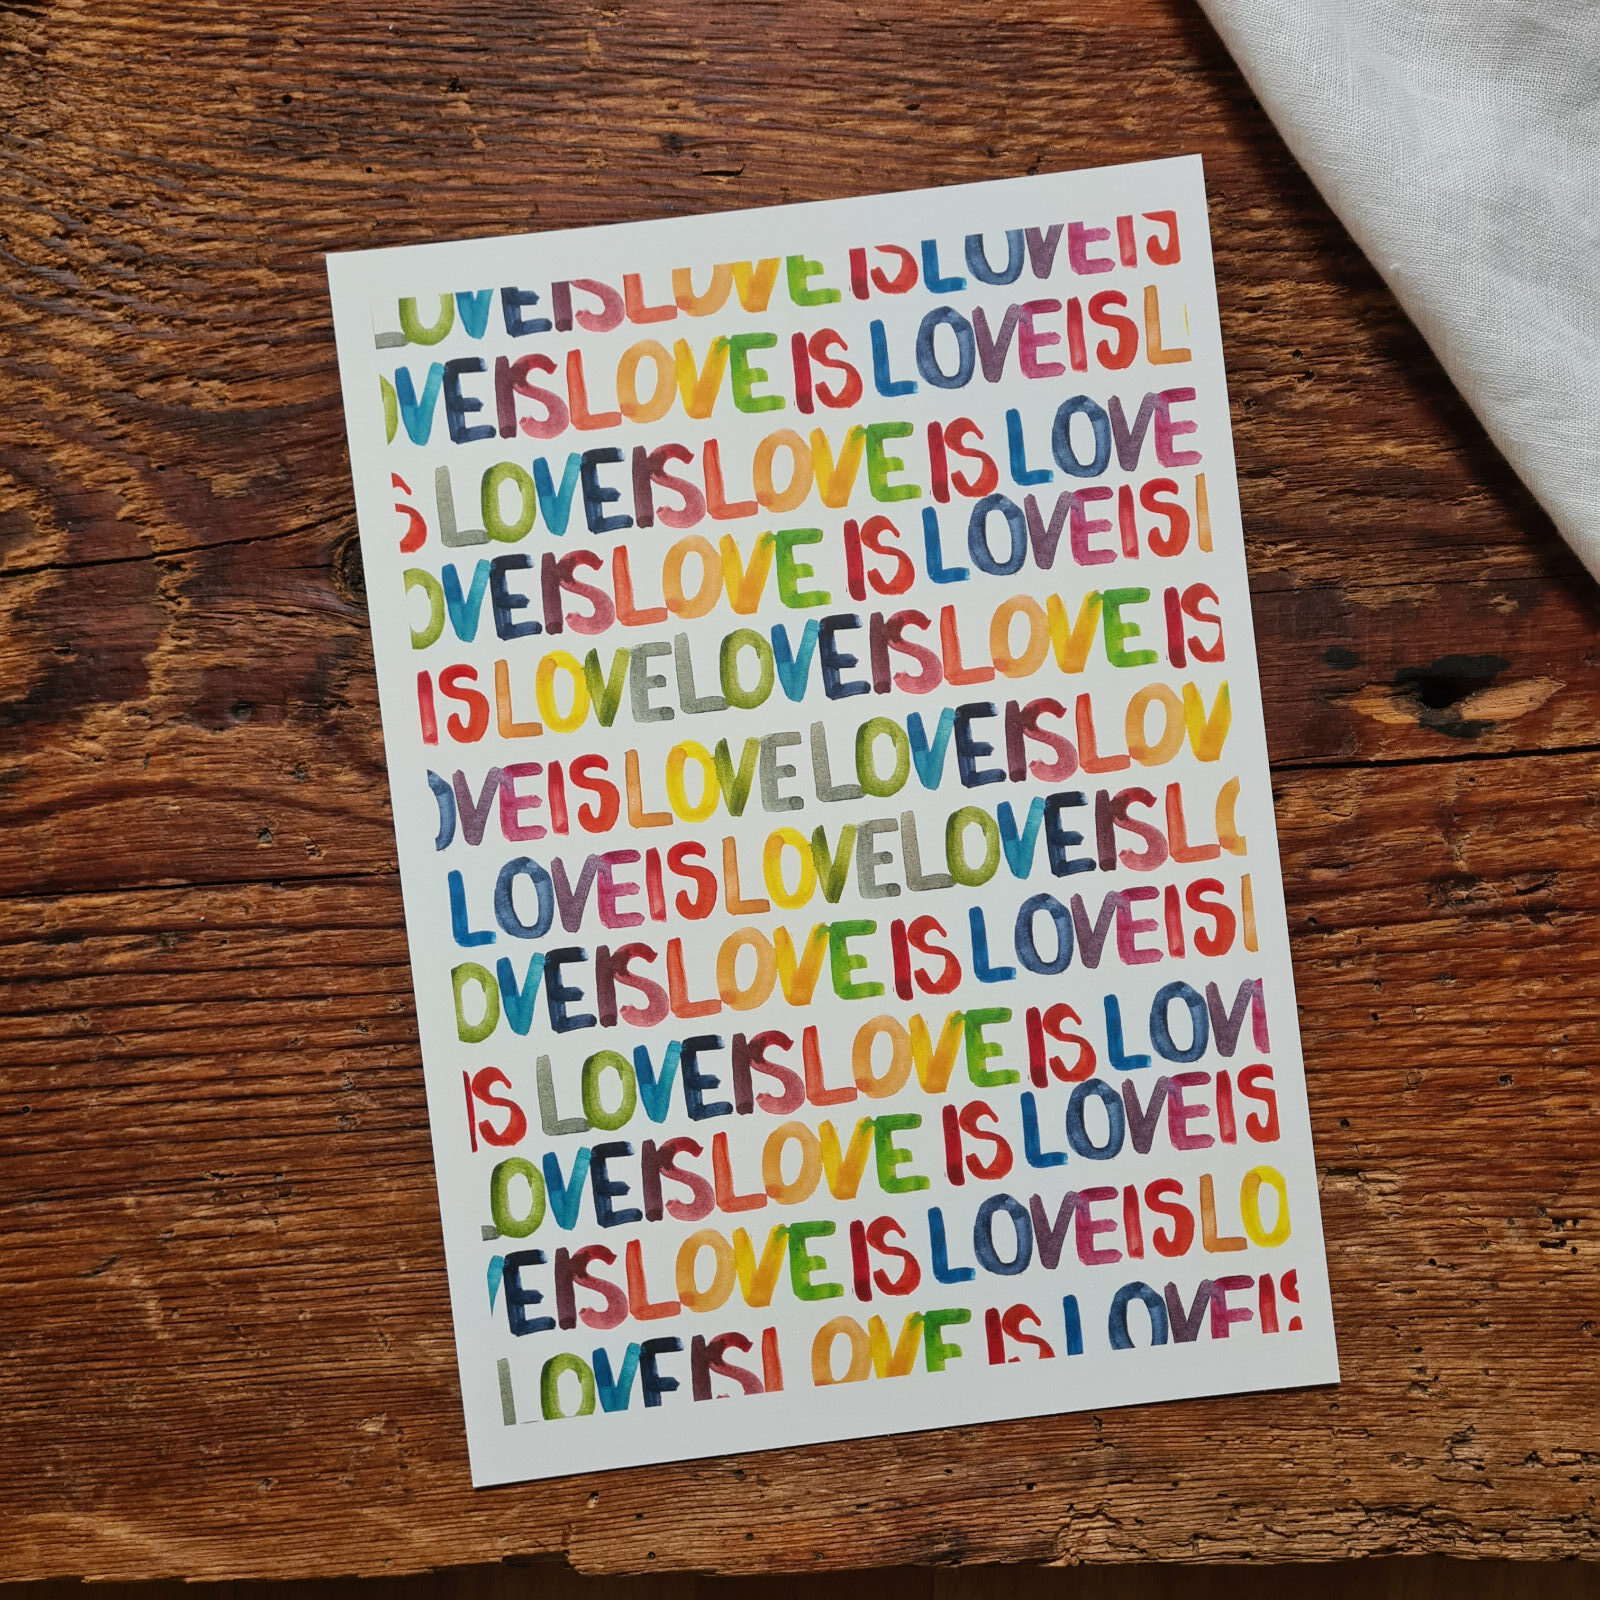 LOVEISLOVE IS LOVEIS
OVEISLOVE IS LOVEISL
S LOVEISLOVE IS LOVE
OVEISLOVE IS LOVEIS
ISLOVELOVEISLOVE IS
OVEISLOVE LOVEISLOV
LOVEISLOVELOVEISLO
OVEISLOVE IS LOVEIS
IS LOVEISLOVE IS LOV
LOVEISLOVE IS LOVEIS
VEISLOVE IS LOVEISLO
LOVEISLOVE IS LOVEIS